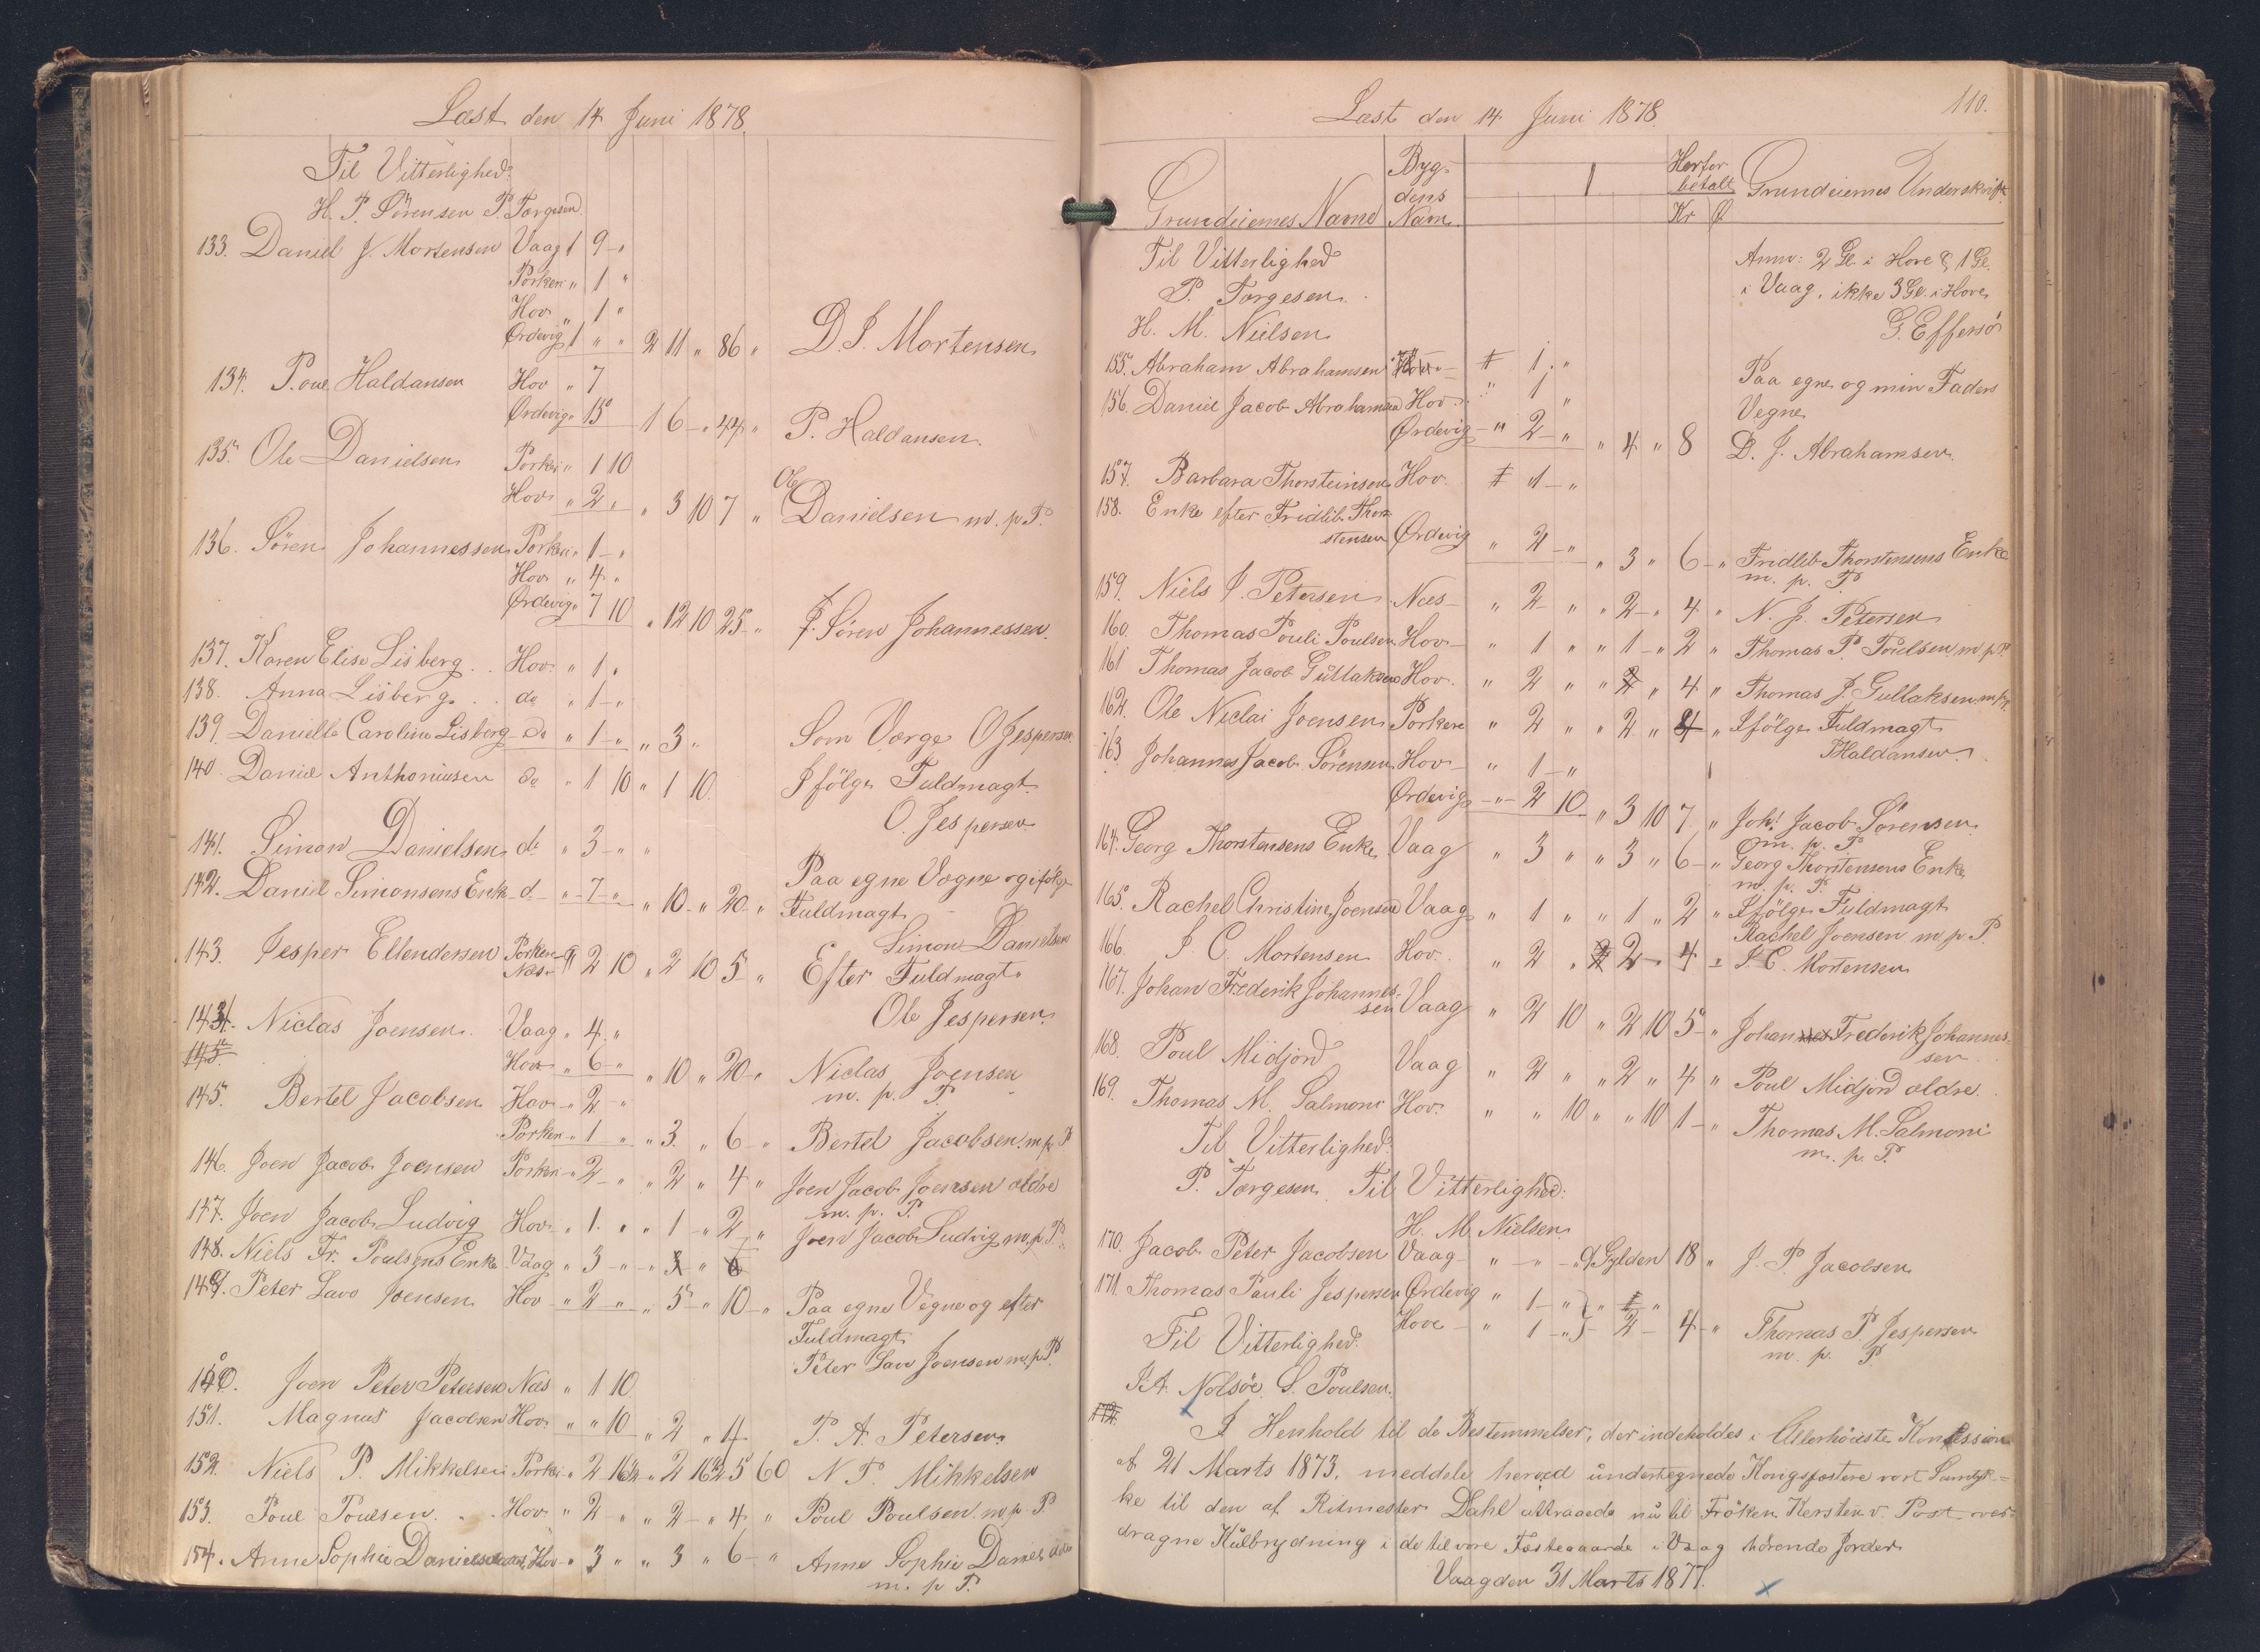 Læst den 14 Juni 1878.
Til Vitterlighed:
H. P. Sörensen P. Torgesen.
133. Daniel J. Mortensen Vaag 1 9 - "
Porkeri " 1 "
Hov " 1 "
Ördevig 1 " " 2 11 " 86 " D. J. Mortensen
134. Poul Haldansen Hov " 7
Ördevig " 15 1 6 - " 44 " P. Haldansen.
135. Ole Danielsen Porkeri " 1 10
Hov " 2 " " 3 10 7 " Ole Danielsen m. p. P.
136. Sören Johannessen Porkeri " 1 - "
Hov " 4 "
Ördevig " 7 10 " 12 10 25 " Sören Johannessen.
137. Karen Elise Lisberg . . Hov " 1 "
138. Anna Lisberg . . do " 1 - "
139. Danielle Caroline Lisberg do " 1 - " " 3 " Som Værge O Jespersen
140. Daniel Anthoniusen do " 1 10 " 1 10. Ifölge Fuldmagt
O. Jespersen
141. Simon Danielsen do " 3 - " "
142. Daniel Simonsens Enke d - " - 7 - " " 10 - " 20 - " Paa egne Vegne og ifölge
Fuldmagt
Simon Danielsen
143. Jesper Ellendersen Porkeri
Næs - 2 10 " 2 10 5 " Efter Fuldmagt
Ole Jespersen
144. Niclas Joensen. Vaag " 4 "
145
Hov " 6 - " " 10 " 20 - " Niclas Joensen
m. p. P
145. Bertel Jacobsen Hov - " 2 - "
Porkeri - " 1 " " 3 " 6 " Bertel Jacobsen m. p. P
146. Joen Jacob Joensen Porkeri - " 2 - " " 2 " 4 " Joen Jacob Joensen ældre
m. p. P.
147. Joen Jacob Ludvig Hov " 1 " " 1 - " 2 " Joen Jacob Ludvig m. p. P.
148. Niels Fr. Poulsens Enke Vaag " 3 - " " 3 " 6
149. Peter Lavs Joensen Hov - " 2 " " 5 " 10 - " Paa egne Vegne og efter
Fuldmagt
Peter Lavs Joensen m. p. P.
150. Joen Peter Petersen Næs " 1 10
151. Magnus Jacobsen Hov " " 10 " 2 " 4 P. A. Petersen
152. Niels P. Mikkelsen Porkeri " 2 16½ " 2 16½ 5 60 N P. Mikkelsen
153. Poul Poulsen . . Hov " 2 - " " 2 - " 4 " Poul Poulsen m. p. P
154. Anne Sophie Danielsdatter Hov - " 3 " " 3 " 6 - " Anne Sophie Danielsdatter
m. p P.
Læst den 14 Juni 1878. 110.
Grundeiernes Navne Bygdens Navn. Herfor betalt Kr Ø Grundeiernes Underskrift
Til Vitterlighed
P. Torgesen.
H. M. Nielsen
Anm: 2 Gl. i Hove & 1 Gl.
i Vaag, ikke 3 Gl. i Hove
G. Effersö
155. Abraham Abrahamsen Hov - " 1 "
156. Daniel Jacob Abrahamsen Hov " 1 "
Ördevig - " 2 - " " 4 " 8 Paa egne og min Faders
Vegne
D. J. Abrahamsen
157. Barbara Thorsteinsen Hov " 1 - "
158. Enke efter Fridlib Thorstensen Ördevig " 2 - " " 3 " 6 - " Fridlib Thorstensens Enke
m. p. P
159. Niels J. Petersen Næs - " 2 - " " 2 - " 4 " N. J. Petersen
160. Thomas Pouli Poulsen Hov - " 1 " " 1 - " 2 " Thomas P. Poulsen m. p P
161 Thomas Jacob Gullaksen Hov. " 2 " " 2 " 4 " Thomas J. Gullaksen m. p. P.
162. Ole Niclai Joensen Porkere " 2 " " 2 " 4 " Ifölge Fuldmagt
P Haldansen
163. Johannes Jacob Sörensen Hov - " 1 - "
Ördevig - " - 2 10 " 3 10 7 " Joh: Jacob Sörensen
m. p. P
164. Georg Thorstensens Enke Vaag " 3 " " 3 " 6 - " Georg Thorstensens Enke
m. p. P.
165. Rachel Christine Joensen Vaag " 1 " " 1 " 2 " Ifölge Fuldmagt
Rachel Joensen m p P.
166. J. C. Mortensen Hov. " 2 " 2 - " 4 " J. C. Mortensen
167. Johan Frederik Johannessen Vaag " 2 10 " 2 10 5 - " Johan Frederik Johannessen
168. Poul Midjord Vaag " 2 " " 2 " 4 " Poul Midjord ældre.
169. Thomas M. Salmoni Hov. " " 10 " " 10 1 - " Thomas M. Salmoni
m. p. P.
Til Vitterlighed:
P. Torgesen. Til Vitterlighed:
H. M Nielsen
170. Jacob Peter Jacobsen Vaag - " - " - " 9 Gylden 18 " J. P. Jacobsen
171. Thomas Pauli Jespersen Ördevig " 1 - "
Hove - " 1 - " 2 - 4 - " Thomas P. Jespersen
m. p. P
Til Vitterlighed.
P. A. Nolsöe. S. Poulsen.
172.
I Henhold til de Bestemmelser, der indeholdes i Allerhöieste Konsession
af 21 Marts 1873, meddele herved undertegnede Kongsfæstere vort Samtyk=
ke til den af Ritmester Dahl attraaede nu til Fröken Kersten v. Post over=
dragne Kulbrydning i de til vore Fæstegaarde i Vaag hörende Jorder
Vaag den 31 Marts 1877.